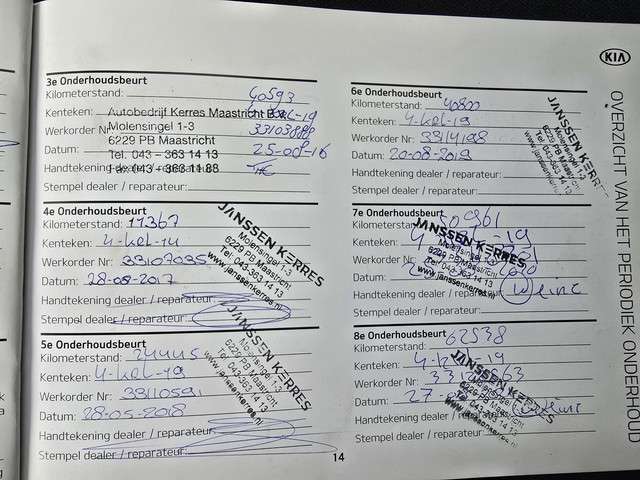 KIA
OVERZICHT VAN HET PERIODIEK ONDERHOUD
3e Onderhoudsbeurt
Kilometerstand: 40593
Kenteken:
Autobedrijf Kerres Maastricht B.V.
Molensingel 1-3
6229 PB Maastricht
Tel. 043 - 363 14 13
Fax 043 - 363 11 88
Werkorder Nr
Datum: 25-08-16
Handtekening dealer
Stempel dealer / reparateur:
4e Onderhoudsbeurt
Kilometerstand: 17367
Kenteken: 4-kel-14
Werkorder Nr: 33107035
Datum: 28-08-2017
Handtekening dealer / reparateur:
Stempel dealer / reparateur:
JANSSEN KERRES
Molensingel 1-3
6229 PB Maastricht
Tel. 043-363 14 13
www.janssenkerres.nl
5e Onderhoudsbeurt
Kilometerstand: 24445
Kenteken: 4-kel-19
Werkorder Nr: 3311059
Datum: 28-05-2018
Handtekening dealer / reparateur:
Stempel dealer / reparateur:
JANSSEN KERRES
Molensingel 1-3
6229 PB Maastricht
Tel. 043-363 14 13
www.janssenkerres.nl
6e Onderhoudsbeurt
Kilometerstand: 40800
Kenteken: 4-kel-19
Werkorder Nr: 3314198
Datum: 20-08-2019
Handtekening dealer / reparateur:
Stempel dealer / reparateur:
JANSSEN KERRES
Molensingel 1-3
6229 PB Maastricht
Tel. 043-363 14 13
www.janssenkerres.nl
7e Onderhoudsbeurt
Kilometerstand: 50961
Kenteken:
Werkorder Nr
Datum
Handtekening dealer / reparateur:
Stempel dealer / reparateur:
JANSSEN KERRES
Molensingel 1-3
6229 PB Maastricht
Tel. 043-363 14 13
www.janssenkerres.nl
8e Onderhoudsbeurt
Kilometerstand: 62538
Kenteken:
Werkorder Nr:
Datum: 27
Handtekening dealer / reparateur:
Stempel dealer / reparateur:
JANSSEN KERRES
Molensingel 1-3
6229 PB Maastricht
Tel. 043-363 14 13
www.janssenkerres.nl
14